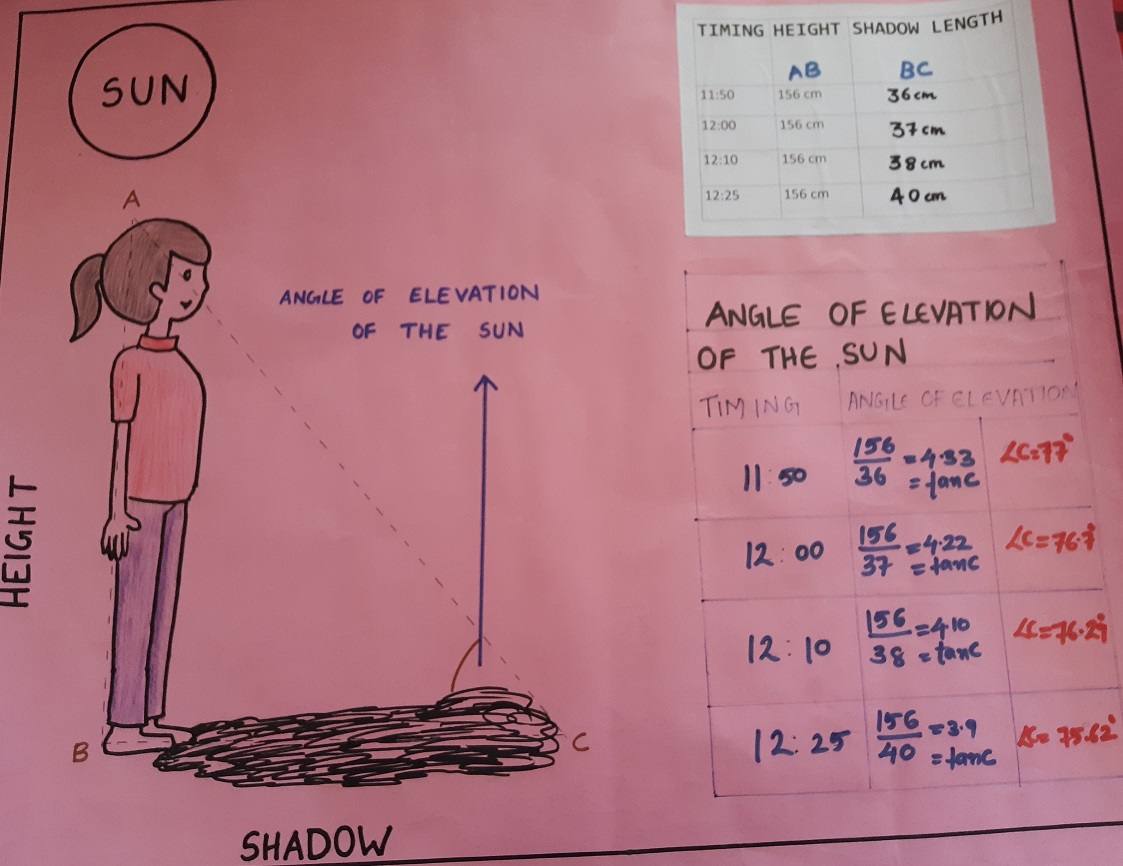 SUN
A
ANGLE OF ELEVATION
OF THE SUN
HEIGHT
B
C
SHADOW
TIMING HEIGHT SHADOW LENGTH
AB BC
11:50 156 cm 36cm
12:00 156 cm 37cm
12:10 156 cm 38cm
12:25 156 cm 40cm
ANGLE OF ELEVATION
OF THE SUN
TIMING ANGLE OF ELEVATION
11:50 156/36 = 4.33 = tanC ∠C=77°
12:00 156/37 = 4.22 = tanC ∠C=76.7°
12:10 156/38 = 4.10 = tanC ∠C=76.29°
12:25 156/40 = 3.9 = tanC ∠C= 75.62°